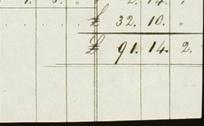 2. 14. "
£ 32. 10. "
£ 91. 14. 2.